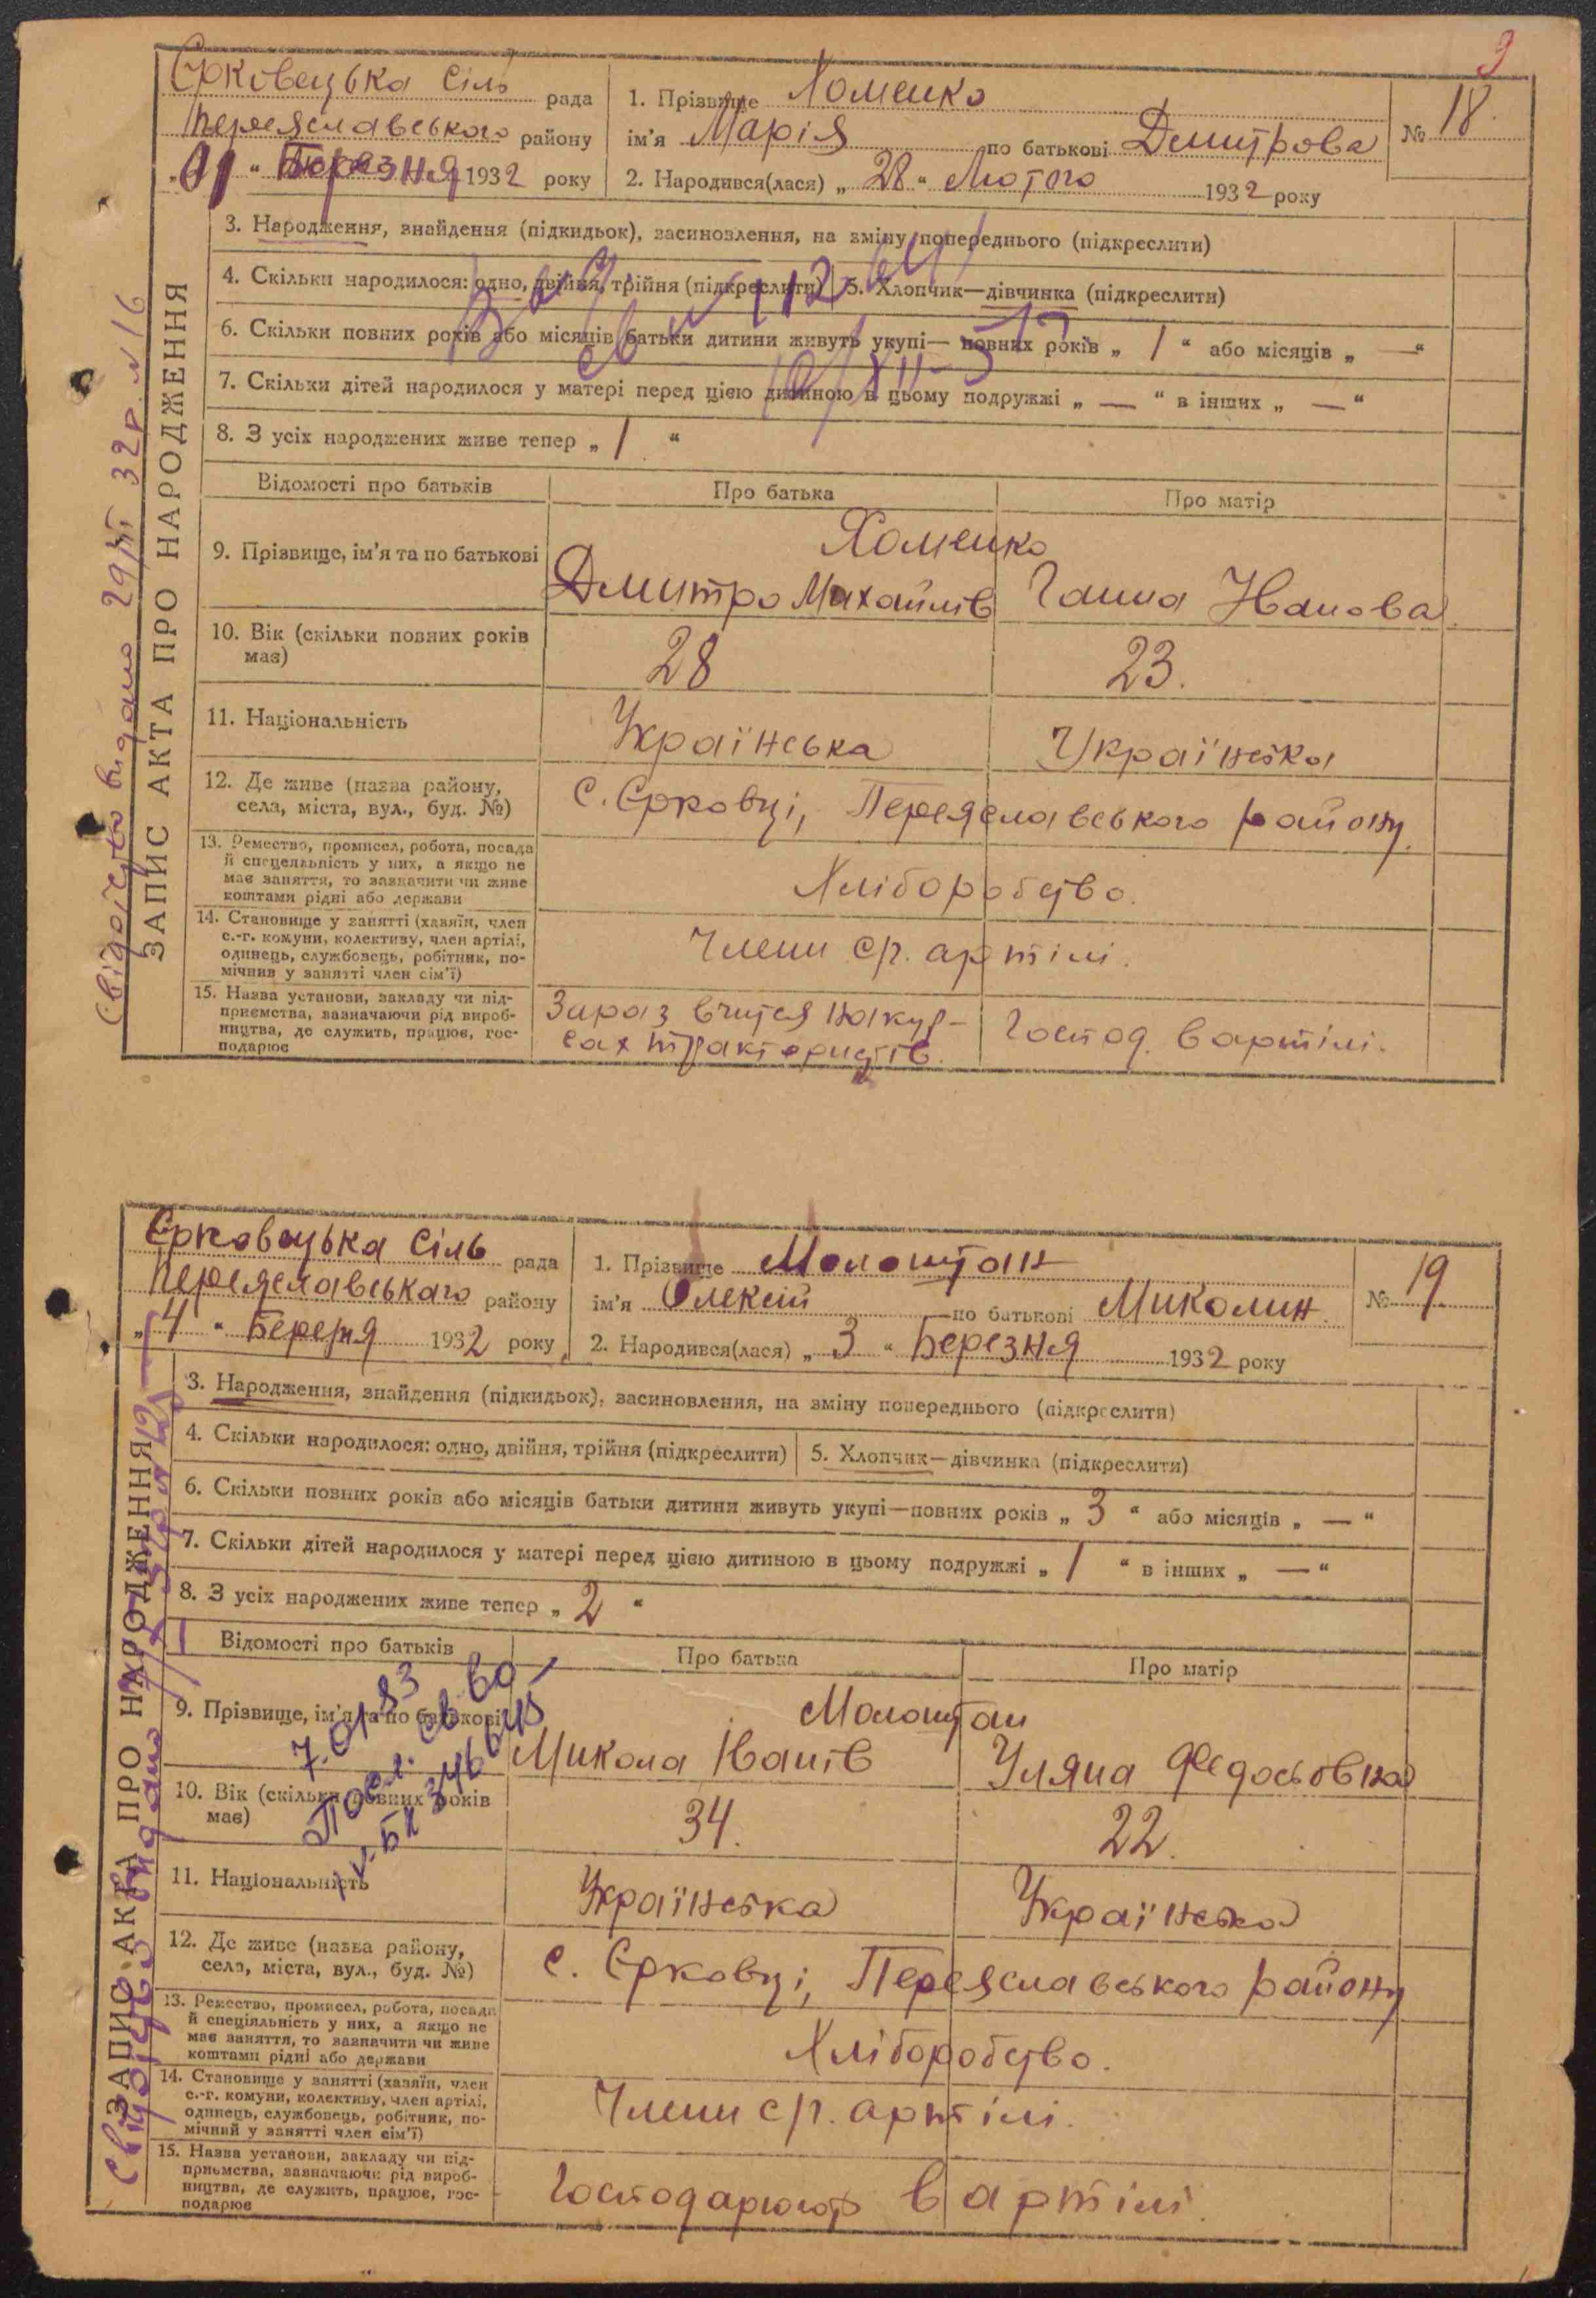 9
Єрковецька Сіль рада
Переяславського району
„01“ Березня 1932 року
1. Прізвище Хоменко
ім’я Марія по батькові Дмитрова
№ 18.
2. Народився(лася) „28“ Лютого 1932 року
ЗАПИС АКТА ПРО НАРОДЖЕННЯ
Свідоцтво видано 29/III 32 р. №16
3. Народження, знайдення (підкидьок), засиновлення, на зміну попереднього (підкреслити)
4. Скільки народилося: одно, двійня, трійня (підкреслити) 5. Хлопчик—дівчинка (підкреслити)
6. Скільки повних років або місяців батьки дитини живуть укупі— повних років „ 1 “ або місяців „ — “
7. Скільки дітей народилося у матері перед цією дитиною в цьому подружжі „ — “ в інших „ — “
8. З усіх народжених живе тепер „ 1 “
Відомості про батьків Про батька Про матір
9. Прізвище, ім’я та по батькові
Хоменко
Дмитро Михайлів Ганна Іванова
10. Вік (скільки повних років
має)
28 23.
11. Національність Українська Українська
12. Де живе (назва району,
села, міста, вул., буд. №)
с. Єрковці, Переяславського району.
13. Ремество, промисел, робота, посада
й спецеяльність у них, а якщо не
має заняття, то зазначити чи живе
коштами рідні або держави
Хліборобство.
14. Становище у занятті (хазяїн, член
с.-г. комуни, колективу, член артілі,
одинець, службовець, робітник, по-
мічник у занятті член сім’ї)
Члени с/г. артілі.
15. Назва установи, закладу чи під-
приємства, зазначаючи рід вироб-
ництва, де служить, працює, гос-
подарює
Зараз вчится на кур-
сах трактористів.
Господ. в артілі.
Єрковецька Сіль рада
Переяславського району
„4“ Березня 1932 року
1. Прізвище Молоштан
ім’я Олексій по батькові Миколин.
№ 19.
2. Народився(лася) „3“ Березня 1932 року
ЗАПИС АКТА ПРО НАРОДЖЕННЯ
Свідоцтво видано
3. Народження, знайдення (підкидьок), засиновлення, на зміну попереднього (підкреслити)
4. Скільки народилося: одно, двійня, трійня (підкреслити) 5. Хлопчик—дівчинка (підкреслити)
6. Скільки повних років або місяців батьки дитини живуть укупі—повних років „ 3 “ або місяців „ — “
7. Скільки дітей народилося у матері перед цією дитиною в цьому подружжі „ 1 “ в інших „ — “
8. З усіх народжених живе тепер „ 2 “
Відомості про батьків Про батька Про матір
9. Прізвище, ім’я та по батькові
Молоштан
Микола Іванів Уляна Федосьовна
7.01.83
10. Вік (скільки повних років
має)
34. 22.
11. Національність Українська Українська
12. Де живе (назва району,
села, міста, вул., буд. №)
с. Єрковці, Переяславського району
13. Ремество, промисел, робота, посада
й спеціяльність у них, а якщо не
має заняття, то зазначити чи живе
коштами рідні або держави
Хліборобство.
14. Становище у занятті (хазяїн, член
с.-г. комуни, колективу, член артілі,
одинець, службовець, робітник, по-
мічний у занятті член сім’ї)
Члени с/г. артілі.
15. Назва установи, закладу чи під-
приємства, зазначаючи рід вироб-
ництва, де служить, працює, гос-
подарює
Господарюют в артілі.